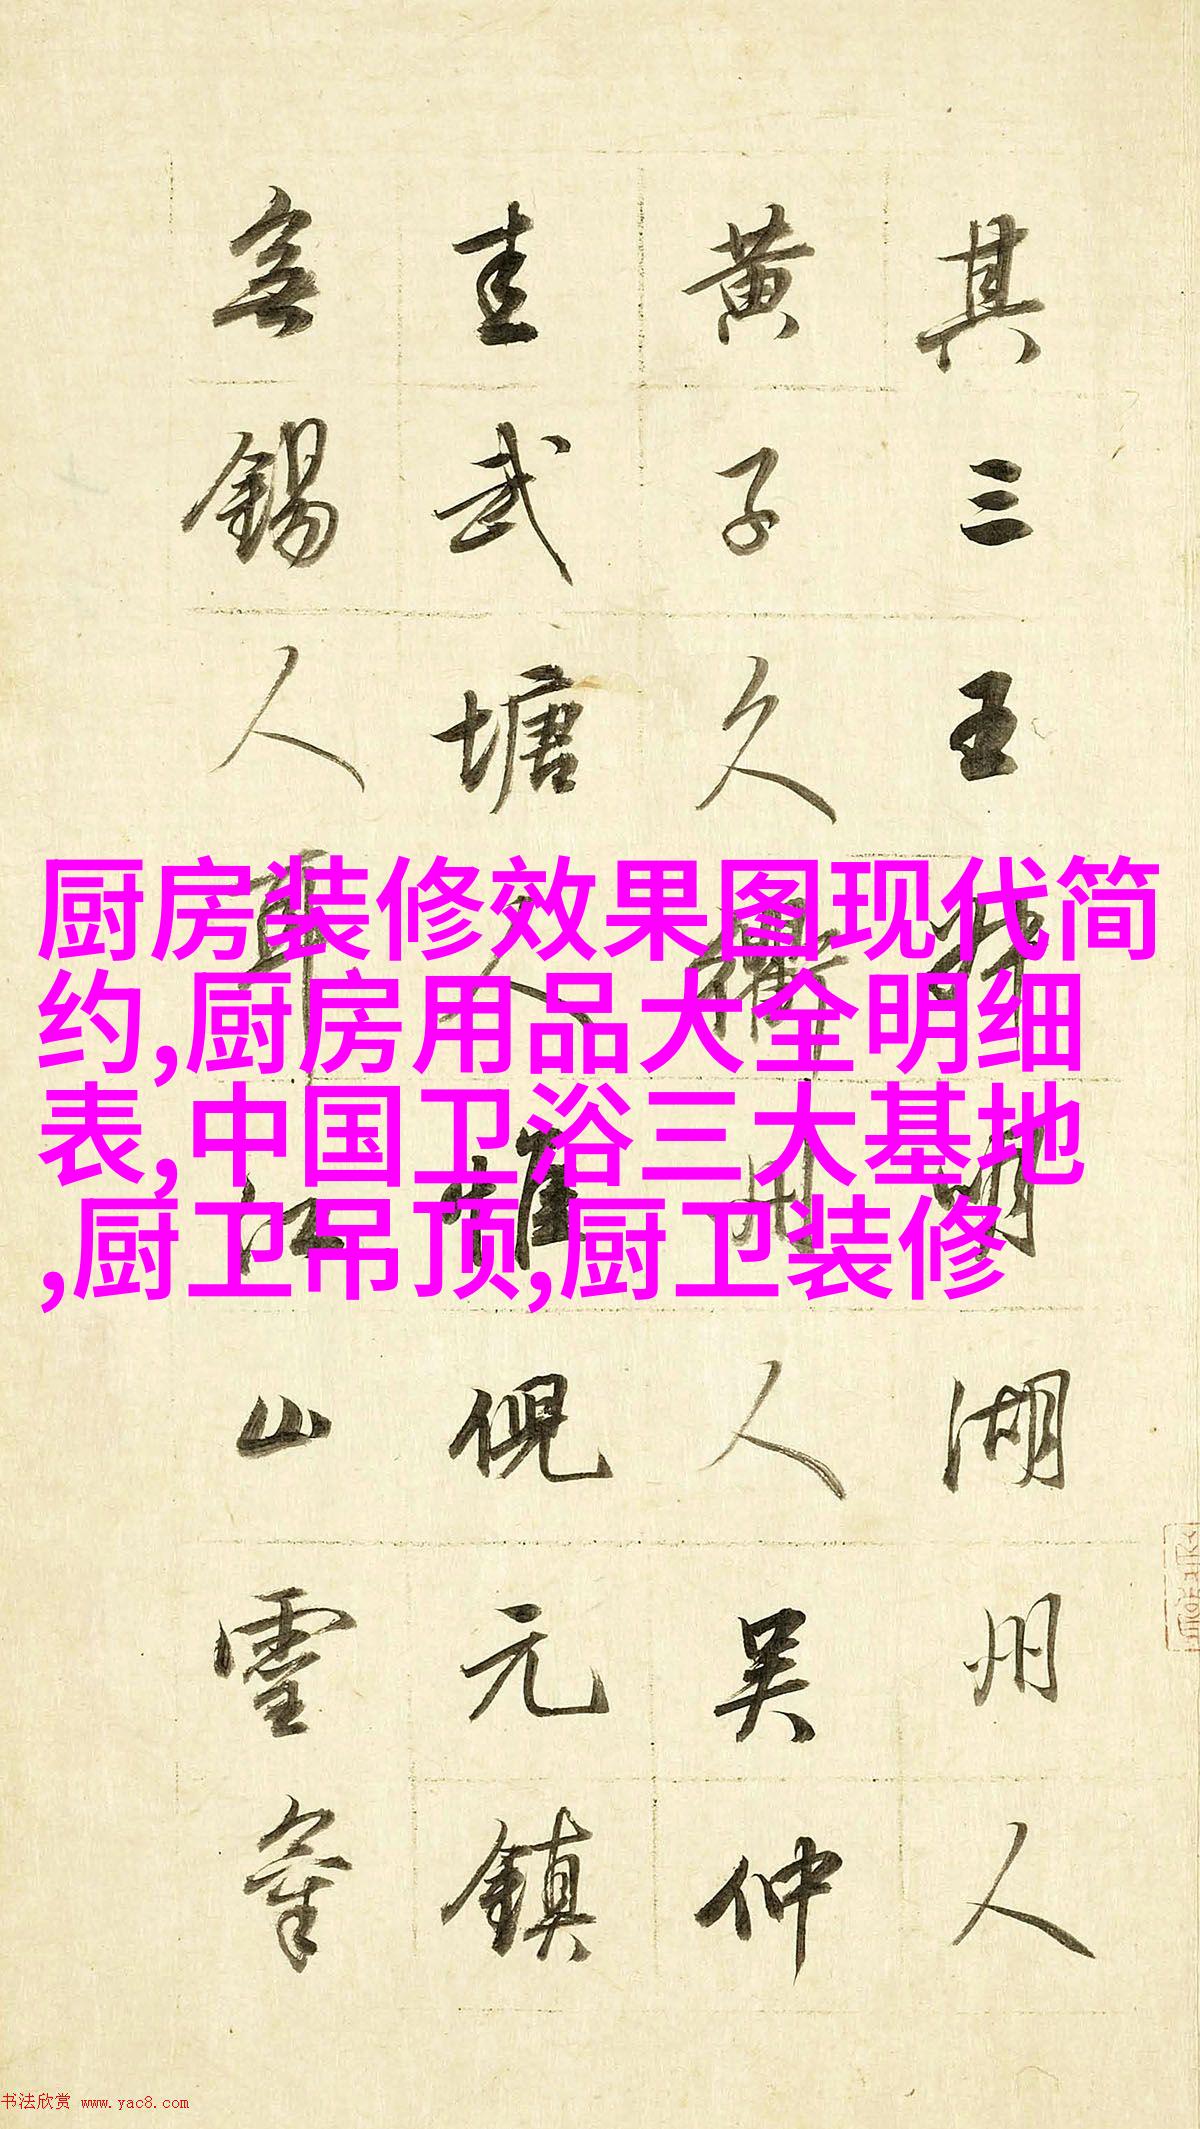 其三王叔明湖州人
黄子久衢州人吴仲
圭武塘人惟倪元鎮
無錫人耳江山靈氣
厨房装修效果图现代简
约,厨房用品大全明细
表,中国卫浴三大基地
,厨卫吊顶,厨卫装修
书法欣赏 www.yac8.com